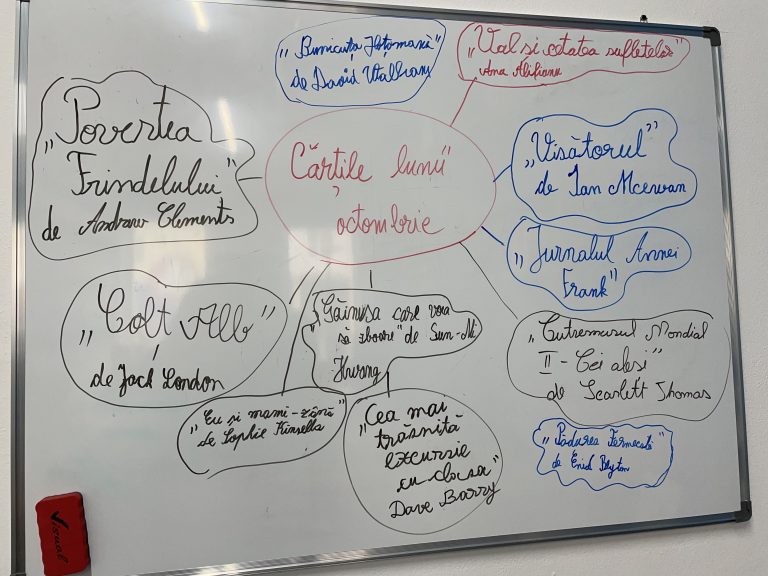 „Bunicuța Hoțomană”
de David Walliams
„Val și cetatea sufletelor”
Ana Alfianu
„Povestea
Frindelului”
de Andrew Clements
Cărțile lunii
octombrie
„Visătorul”
de Ian Mcewan
„Jurnalul Annei
Frank”
„Colț Alb”
de Jack London
„Găinușa care voia
să zboare” de Sun-Mi
Hwang
„Cutremurul Mondial
II - Cei aleși”
de Scarlett Thomas
„Eu și mami-zână”
de Sophie Kinsella
„Cea mai
trăsnită
excursie
cu clasa”
Dave Barry
„Pădurea Fermecată”
de Enid Blyton
Visual